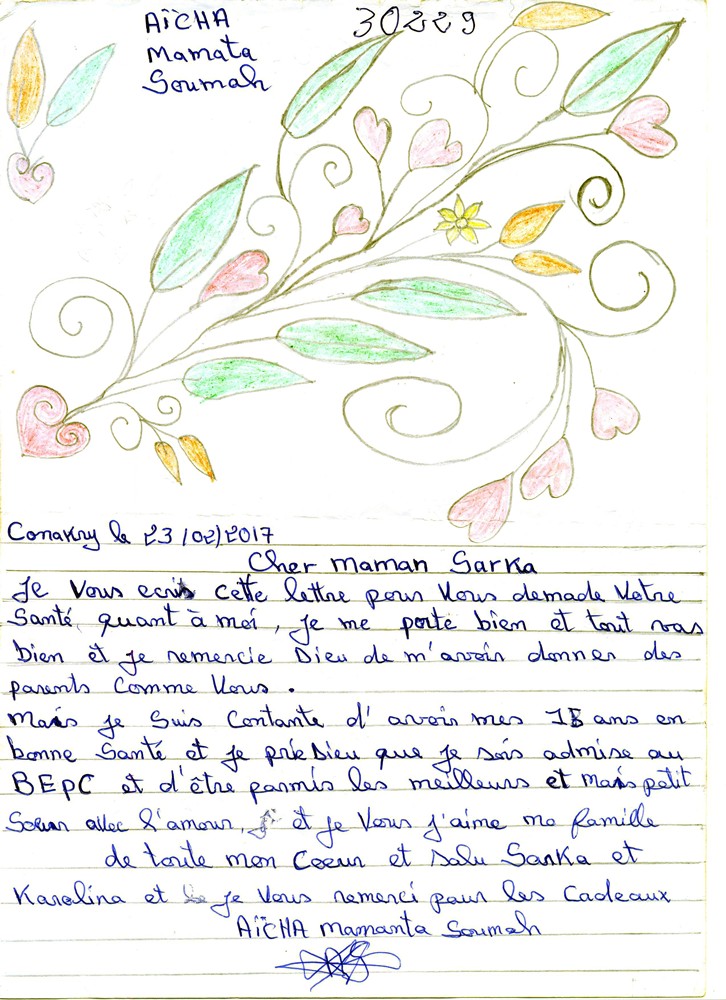 AÏCHA
Mamata
Soumah
30229
Conakry le 23/02/2017
Cher maman Sarka
Je Vous ecris cette lettre pour Vous demade Votre
Santé, quant à moi, je me porte bien et tout vas
bien et je remercie Dieu de m'avoir donner des
parents Comme Vous.
Mais je Suis Contante d'avoir mes 15 ans en
bonne Santé et je prie Dieu que je sois admise au
BEPC et d'être parmis les meilleurs et Mais petit
Sœur avec l'amour, et je Vous j'aime ma famille
de toute mon Coeur et Salu Sarka et
Karolina et je Vous remerci pour les Cadeaux
AÏCHA Mamanta Soumah